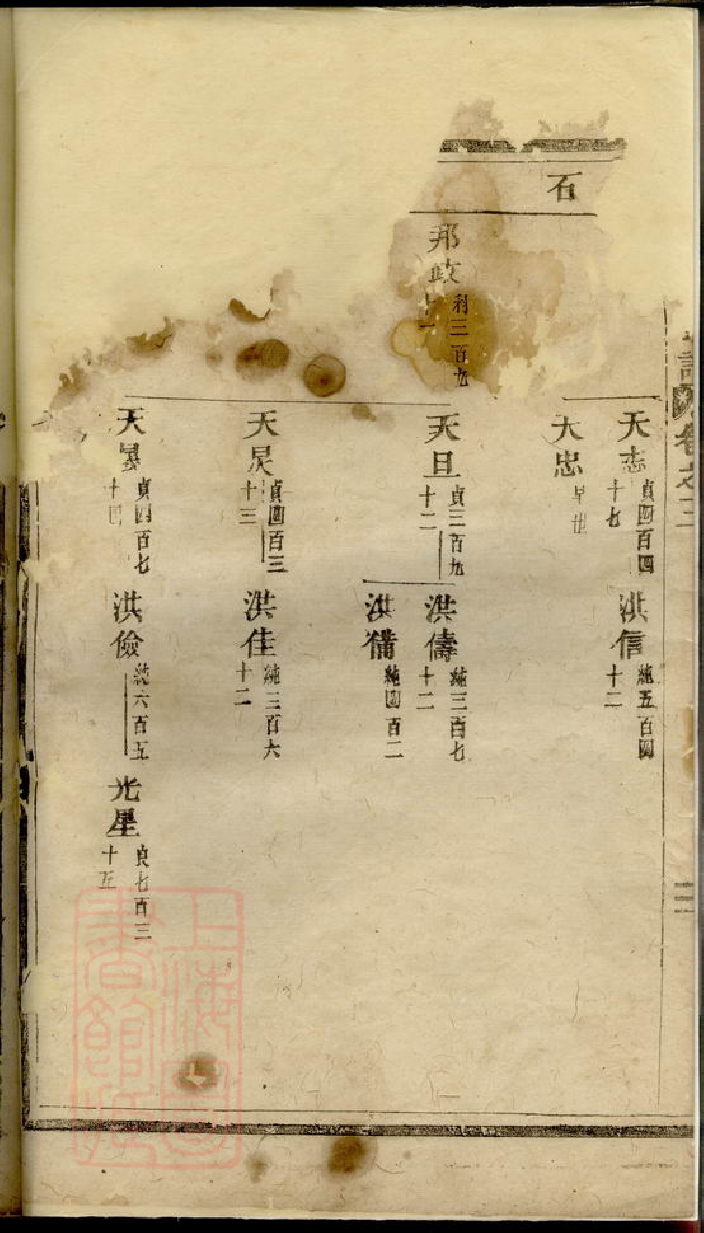 卷之三
三
石
邦政
利三百九
十一
天志
貞四百四
十七
天忠
早世
天旦
貞三百九
十二
天炅
貞四百三
十三
天暴
貞四百七
十四
洪信
純五百四
十二
洪儔
純三百七
十二
洪備
純四百二
洪佳
純三百六
十二
洪儉
純六百五
光星
良七百三
十五
上海圖
書館藏